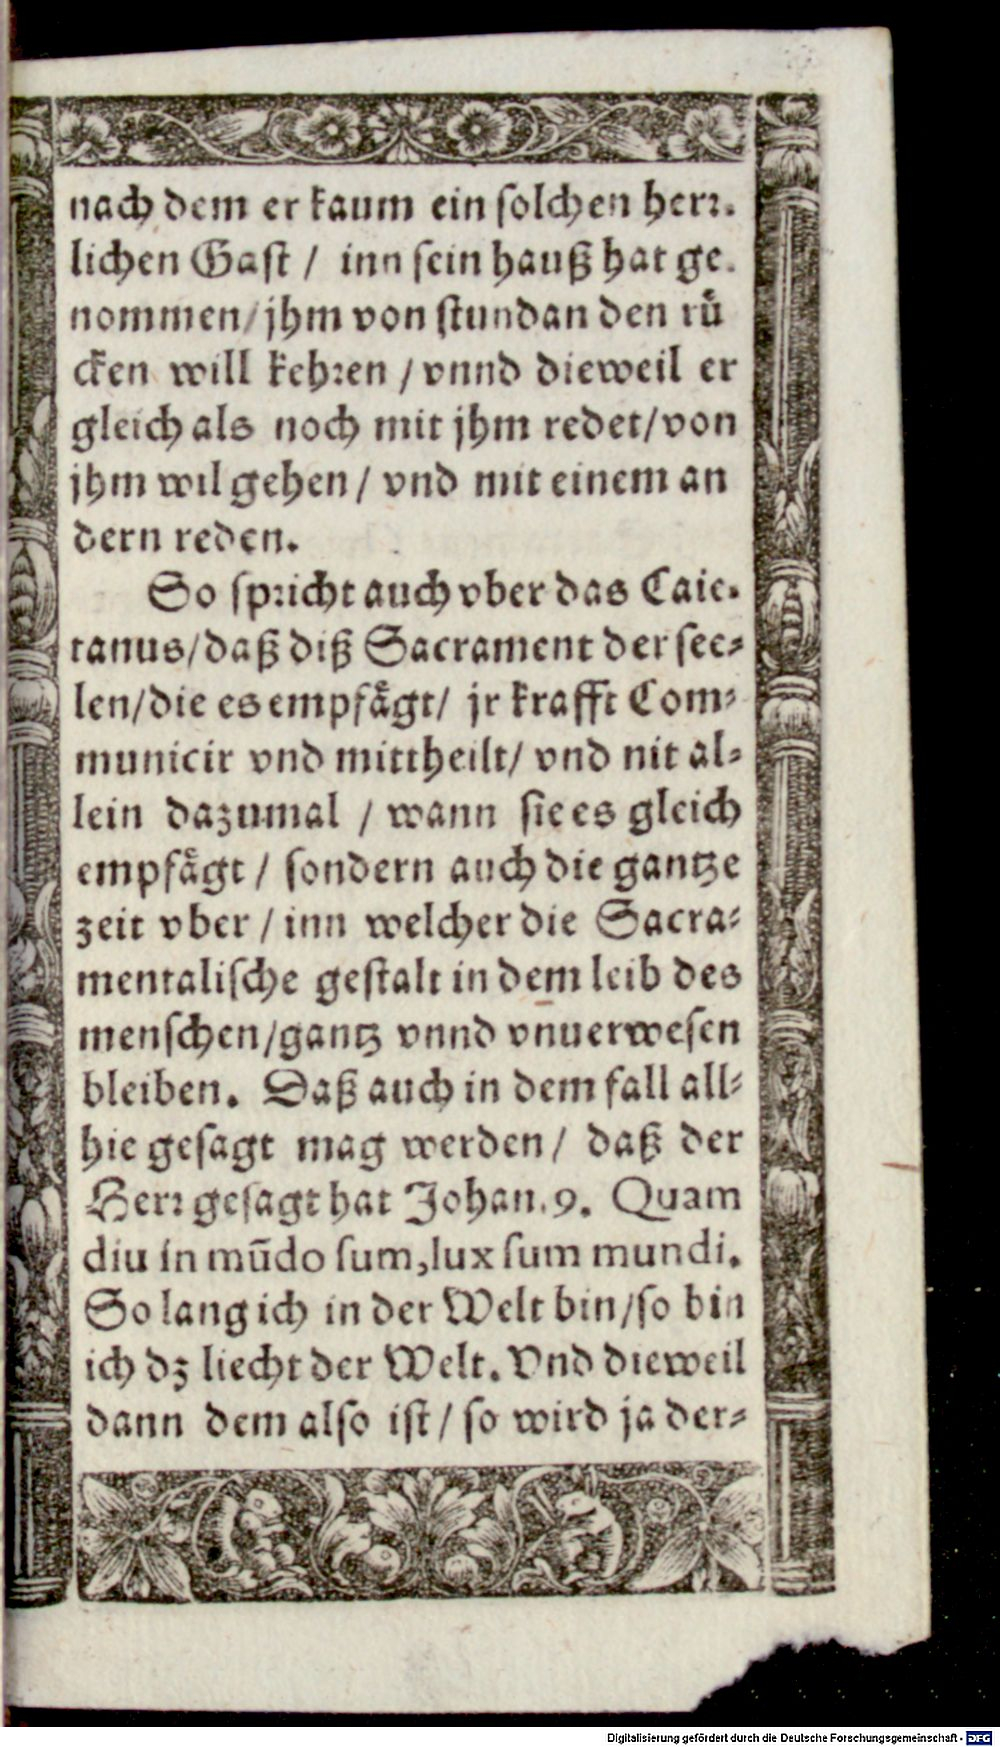 nach dem er kaum ein ſolchen herꝛ.
lichen Gaſt / inn ſein hauß hat ge.
nommen/jhm von ſtundan den ruͤ
cken will kehꝛen / vnnd dieweil er
gleich als noch mit jhm redet/von
jhm wil gehen / vnd mit einem an
dern reden.
So ſpꝛicht auch vber das Caie.
tanus/daß diß Sacrament der ſee⸗
len/die es empfaͤgt/ jr krafft Com⸗
municir vnd mittheilt/ vnd nit al⸗
lein dazumal / wann ſie es gleich
empfaͤgt / ſondern auch die gantze
zeit vber / inn welcher die Sacra⸗
mentaliſche geſtalt in dem leib des
menſchen/gantz vnnd vn̄uerweſen
bleiben. Daß auch in dem fall all⸗
hie geſagt mag werden / daß der
Herꝛ geſagt hat Johan. 9. Quam
diu in mūdo ſum, lux ſum mundi.
So lang ich in der Welt bin/ſo bin
ich dz liecht der Welt. Vnd dieweil
dann dem alſo iſt / ſo wird ja der⸗
Digitalisierung gefördert durch die Deutsche Forschungsgemeinschaft - DFG